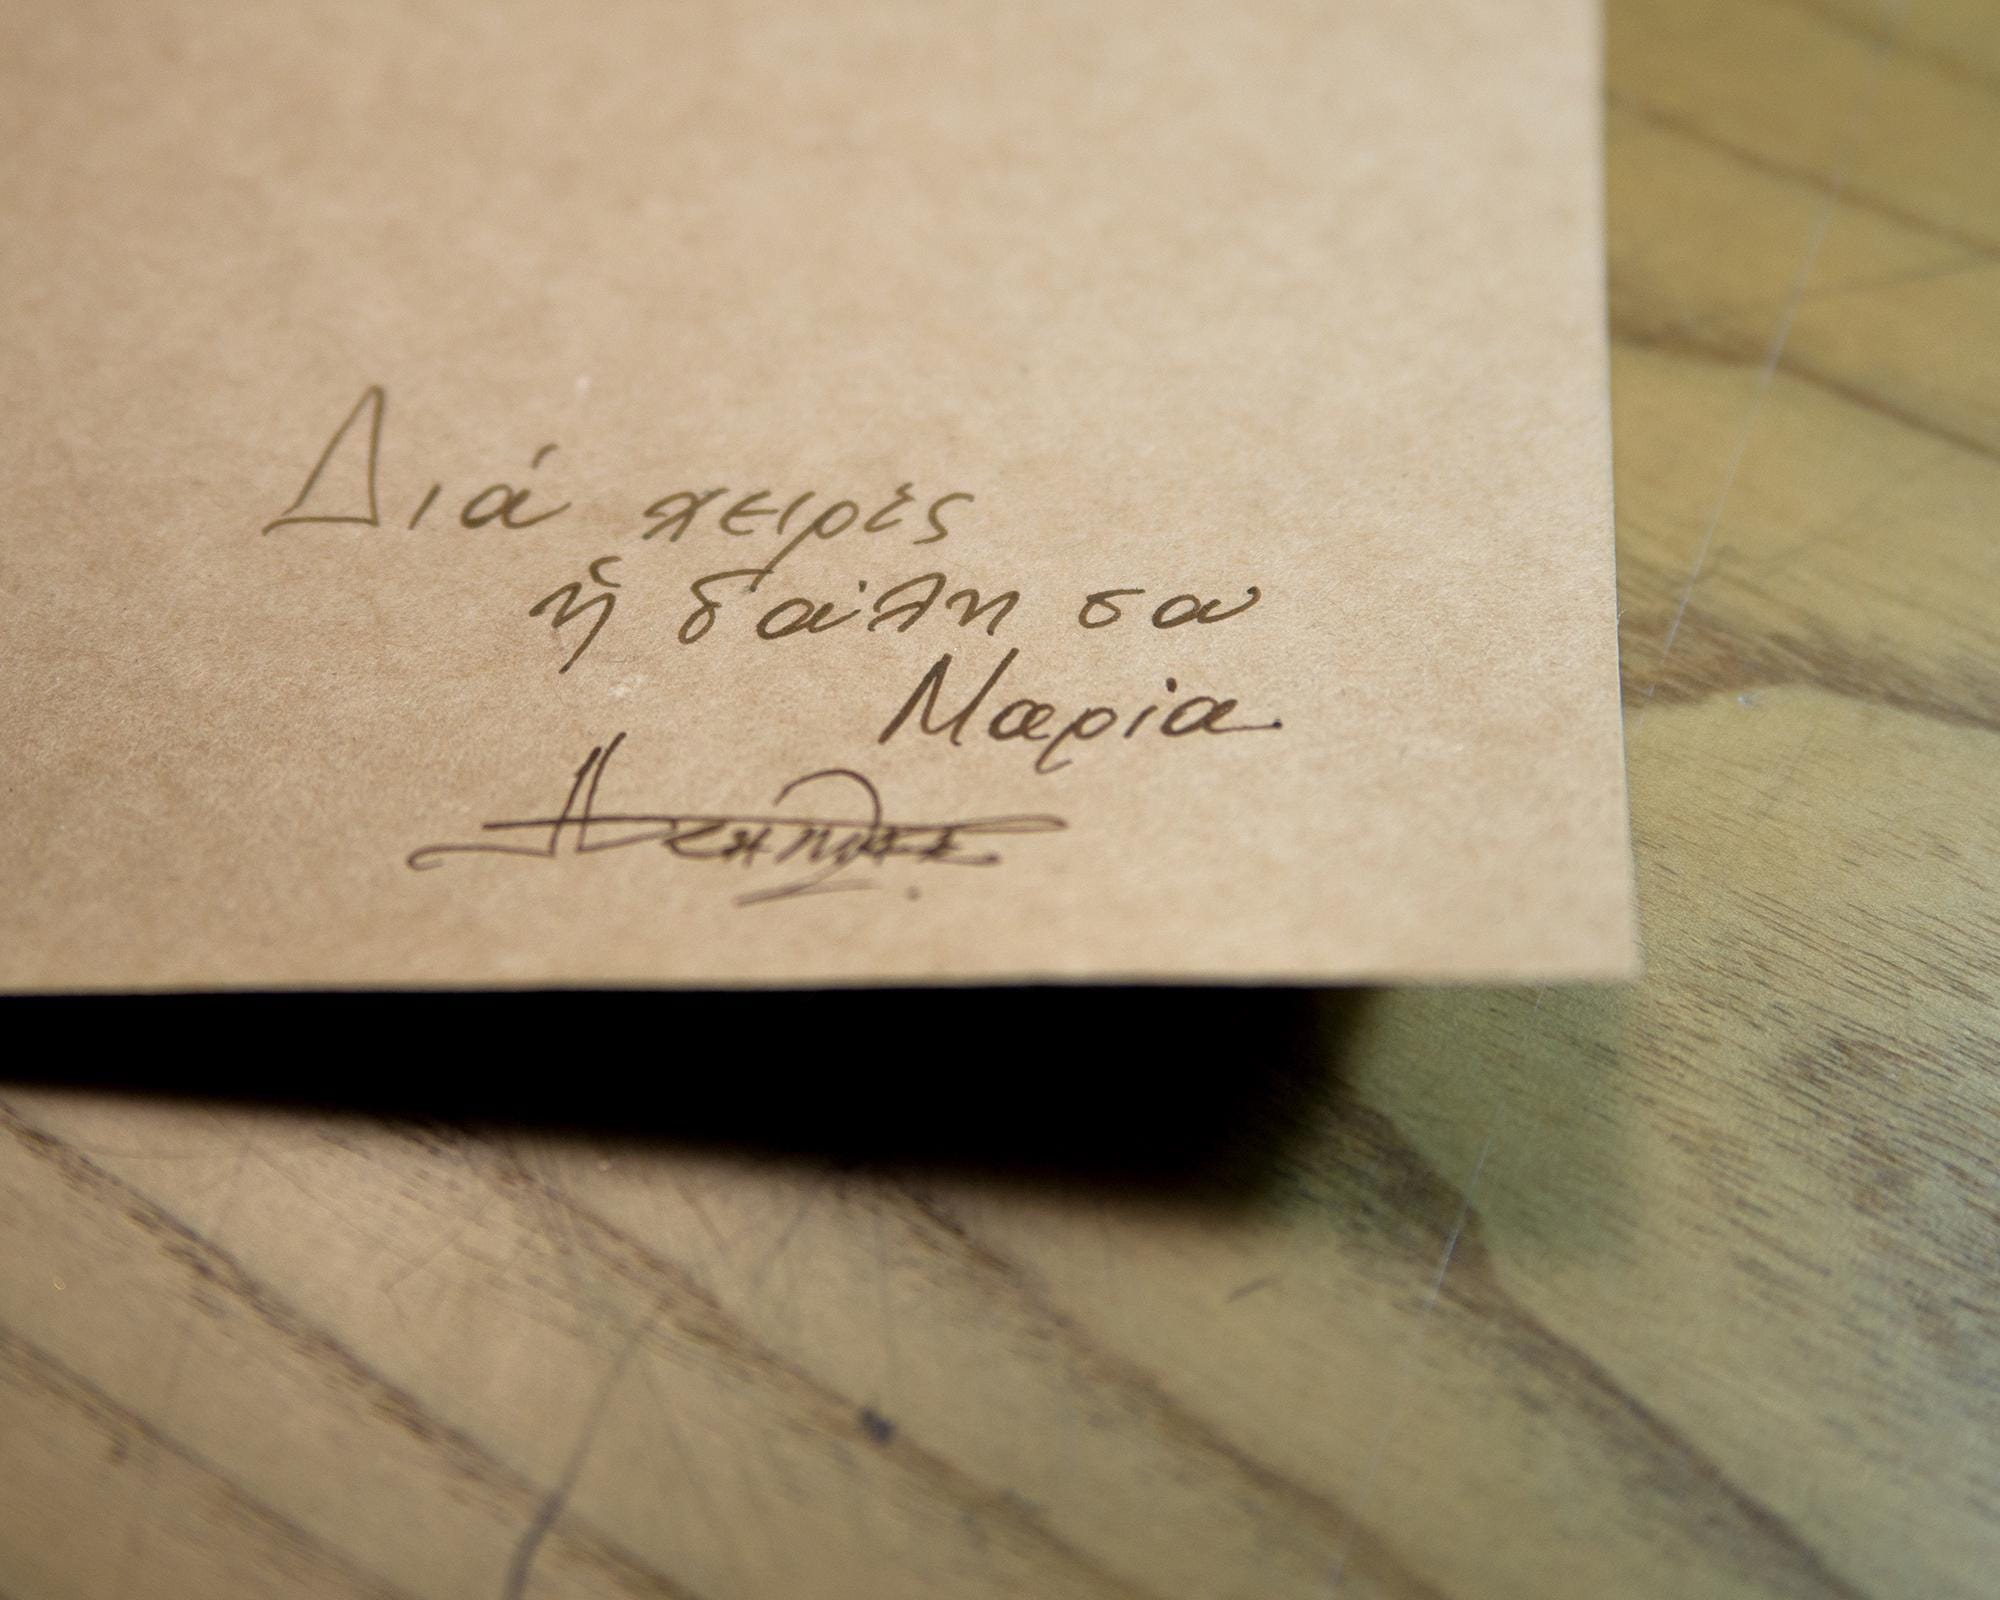 Διά χειρός
ἡ δούλη σου
Μαρία